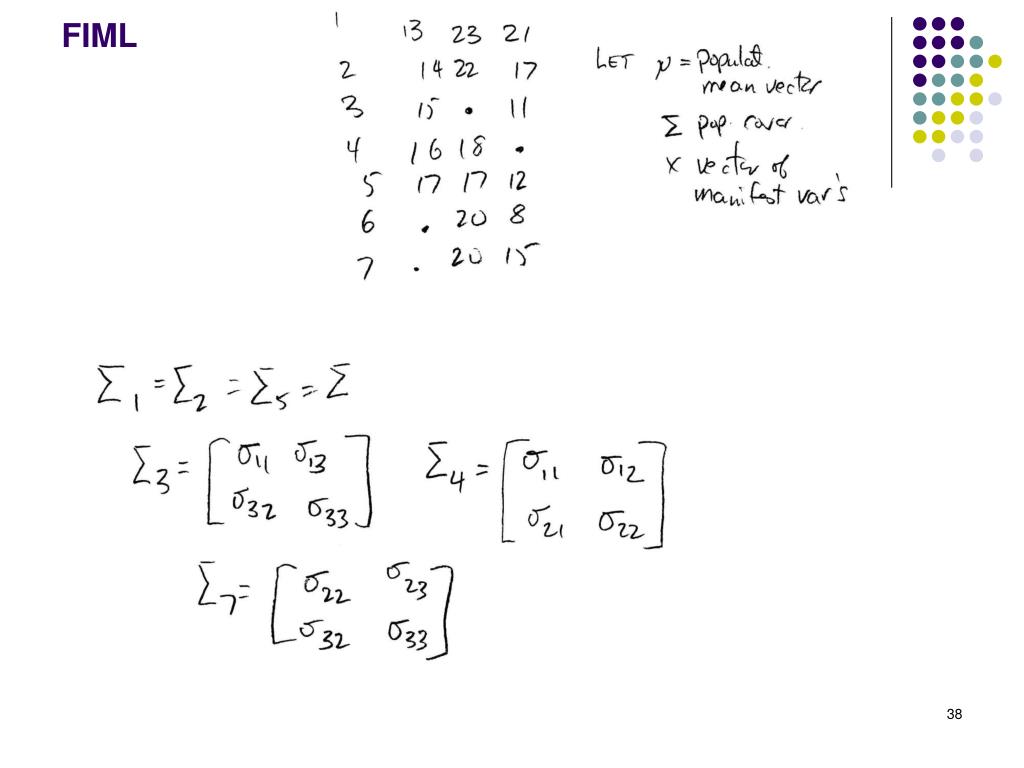 FIML
1 13 23 21
2 14 22 17
3 15 • 11
4 16 18 •
5 17 17 12
6 • 20 8
7 • 20 15
LET μ = populat.
mean vector
Σ pop. covar.
x vector of
manifest var's
Σ1 = Σ2 = Σ5 = Σ
Σ3 = [σ11 σ13 Σ4 = [σ11 σ12
σ32 σ33] σ21 σ22]
Σ7 = [σ22 σ23
σ32 σ33]
38